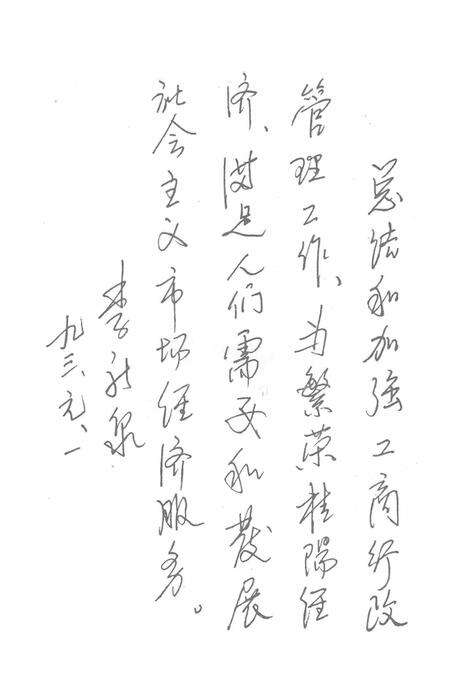 总结和加强工商行政
管理工作、为繁荣桂陽经
济、满足人们需要和发展
社会主义市场经济服务。
李永泉
九三、元、一